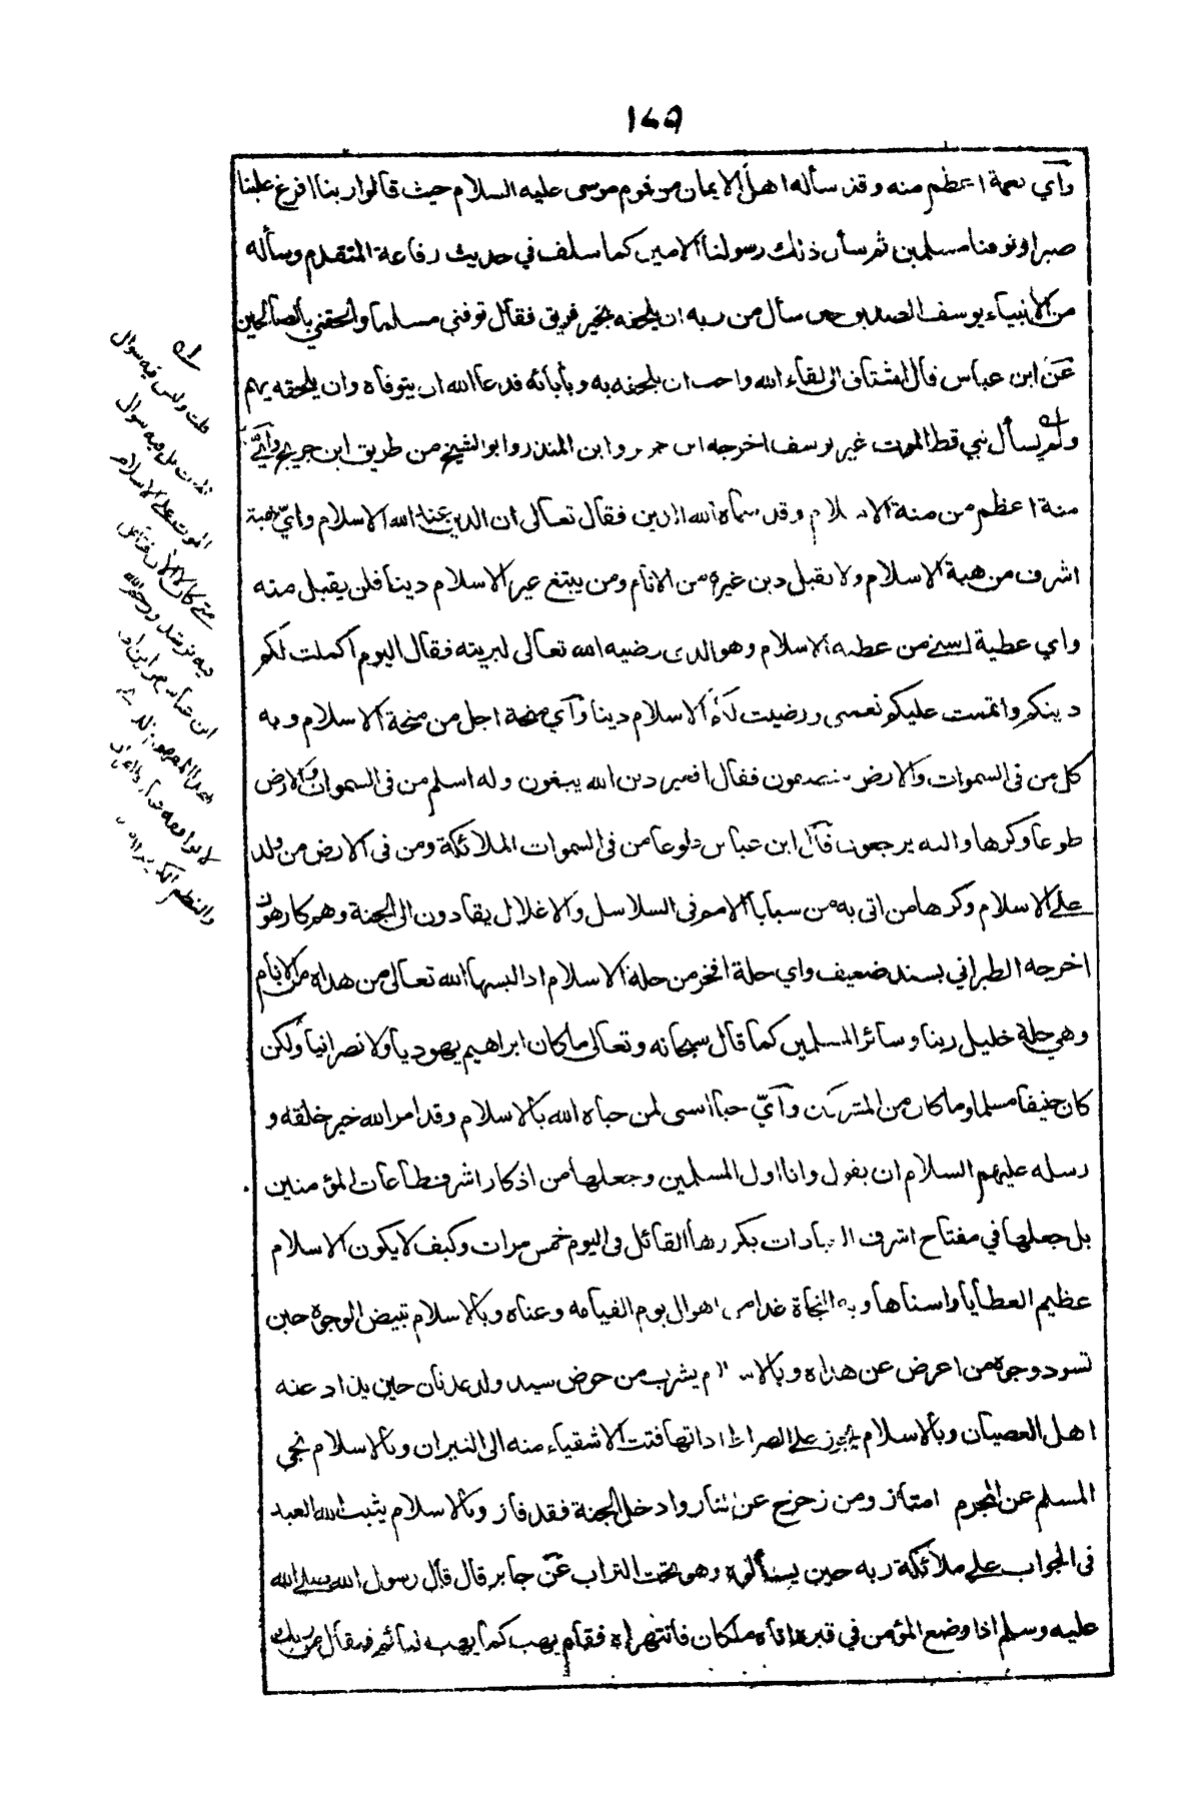 ١٤٩
وأي نعمة اعظم منه وقد سأله اهل الايمان من قوم موسى عليه السلام حيث قالوا ربنا افرغ علينا
صبرا وتوفنا مسلمين ثم سأل ذلك رسولنا الامين كما سلف في حديث رفاعة المتقدم وسأله
من الانبياء يوسف الصديق حين سأل من ربه ان يلحقه بخير فريق فقال توفني مسلما والحقني بالصالحين
عن ابن عباس قال اشتاق الى لقاء الله واحب ان يلحقه به وبأبائه فدعا الله ان يتوفاه وان يلحقه بهم
ولم يسأل نبي قط الموت غير يوسف اخرجه ابن جرير وابن المنذر وابو الشيخ من طريق ابن جريج وأي
منة اعظم من منة الاسلام وقد سماه الله الدين فقال تعالى ان الدين عند الله الاسلام وأي هبة
اشرف من هبة الاسلام ولا يقبل دين غيره من الانام ومن يبتغ غير الاسلام دينا فلن يقبل منه
واي عطية اسنى من عطية الاسلام وهو الذي رضيه الله تعالى لبريته فقال اليوم اكملت لكم
دينكم واتممت عليكم نعمتي ورضيت لكم الاسلام دينا وأي منحة اجل من منحة الاسلام وبه
كل من في السموات والارض فقال افغير دين الله يبغون وله اسلم من في السموات والارض
طوعا وكرها واليه يرجعون قال ابن عباس طوعا من في السموات الملائكة ومن في الارض من ولد
على الاسلام وكرها من اتى به من سبايا الامم في السلاسل والاغلال يقادون الى الجنة وهم كارهون
اخرجه الطبراني بسند ضعيف واي حلة افخر من حلة الاسلام اذ البسها الله تعالى من هداه من الانام
وهي حلة خليل ربنا وسائر المسلمين كما قال سبحانه وتعالى ما كان ابراهيم يهوديا ولا نصرانيا ولكن
كان حنيفا مسلما وما كان من المشركين وأيّ حبا اسنى لمن حباه الله بالاسلام وقد امر الله خير خلقه و
رسله عليهم السلام ان يقول وانا اول المسلمين وجعلها من اذكار اشرف طاعات المؤمنين
بل جعلها في مفتاح اشرف العبادات يكررها القائل في اليوم خمس مرات وكيف لا يكون الاسلام
عظيم العطايا واسناها وبه النجاة غدا من اهوال يوم القيامة وعناه وبالاسلام تبيض الوجوه حين
تسود وجوه من اعرض عن هداه وبالاسلام يشرب من حوض سيد ولد عدنان حين يذاد عنه
اهل العصيان وبالاسلام يجوز على الصراط اذا تهافتت الاشقياء منه الى النيران وبالاسلام نجي
المسلم عن المجرم امتاز ومن زحزح عن النار وادخل الجنة فقد فاز وبالاسلام يثبت الله العبد
في الجواب على ملائكة ربه حين يسألونه وهو تحت التراب عن جابر قال قال رسول الله صلى الله
عليه وسلم اذا وضع المؤمن في قبره اتاه ملكان فانتهراه فقام يهب كما يهب النائم فيقال من ربك
قلت وليس فيه سوال
بل فيه سوال
الموت على الاسلام
متى كان
ابن عباس
والنظم الكريم